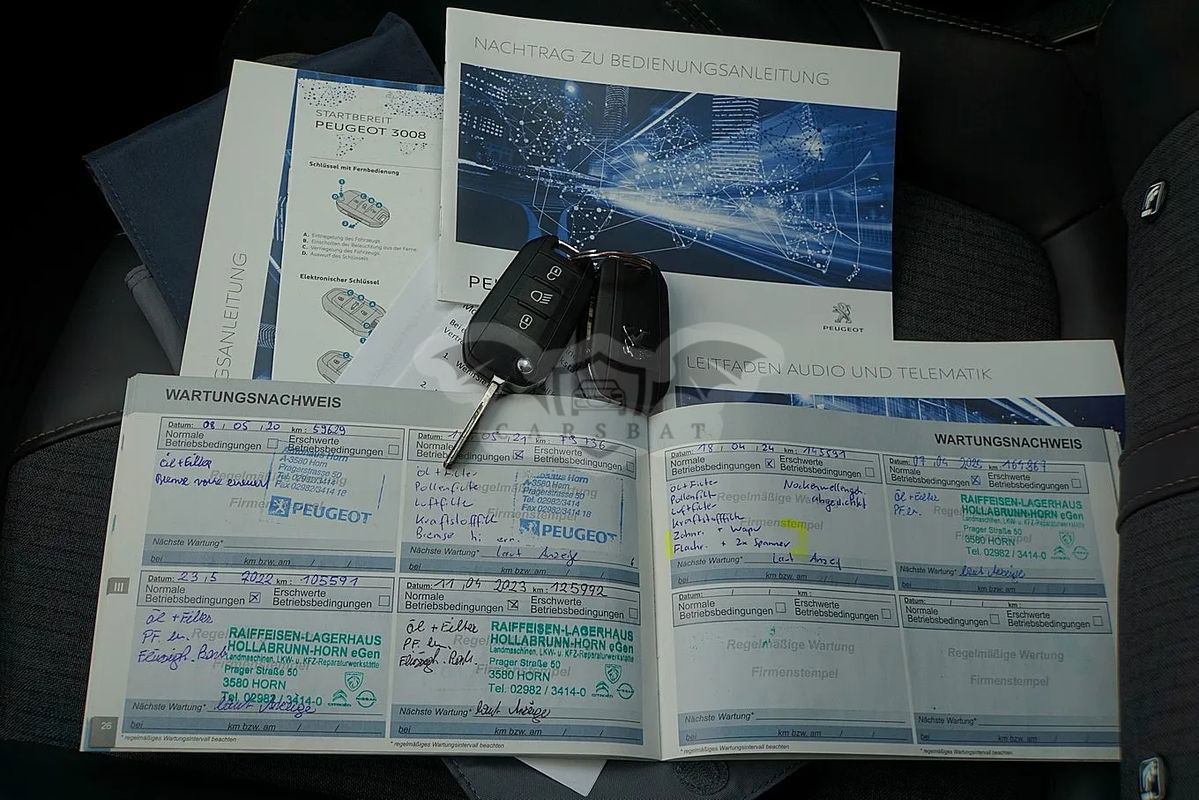 NACHTRAG ZU BEDIENUNGSANLEITUNG
STARTBEREIT
PEUGEOT 3008
Schlüssel mit Fernbedienung
A. Entriegelung des Fahrzeugs.
B. Einschalten der Beleuchtung aus der Ferne.
C. Verriegelung des Fahrzeugs.
D. Auswurf des Schlüssels.
Elektronischer Schlüssel
GSANLEITUNG
PEUGEOT
LEITFADEN AUDIO UND TELEMATIK
CARSBAT
WARTUNGSNACHWEIS
Datum: 08 , 05 , 20 km : 59629
Normale Betriebsbedingungen
Erschwerte Betriebsbedingungen
Öl + Filter
Pragerstrasse 50
Tel. 02982/3414
Fax 02982/3414 18
PEUGEOT
Nächste Wartung*
bei km bzw. am / /
05 , 21 km : 79736
Betriebsbedingungen
Erschwerte Betriebsbedingungen
Öl + Filter
Pollenfilter
Luftfilter
Kraftstofffilt
A-3580 Horn
Pragerstrasse 50
Tel. 02982/3414
Fax 02982/3414 18
PEUGEOT
Nächste Wartung* laut Anzeig
bei km bzw. am / /
Datum: 23 , 5 2022 km : 105591
Normale Betriebsbedingungen
Erschwerte Betriebsbedingungen
Öl + Filter
PF. en.
RAIFFEISEN-LAGERHAUS
HOLLABRUNN-HORN eGen
Landmaschinen, LKW- u. KFZ-Reparaturwerkstätte
Prager Straße 50
3580 HORN
Tel. 02982 / 3414-0
Nächste Wartung* laut Anzeige
bei km bzw. am / /
Datum: 11 , 04 2023 km : 125992
Normale Betriebsbedingungen
Erschwerte Betriebsbedingungen
Öl + Filter
PF. en.
RAIFFEISEN-LAGERHAUS
HOLLABRUNN-HORN eGen
Landmaschinen, LKW- u. KFZ-Reparaturwerkstätte
Prager Straße 50
3580 HORN
Tel. 02982 / 3414-0
Nächste Wartung* laut Anzeige
bei km bzw. am / /
26
* regelmäßiges Wartungsintervall beachten
III
WARTUNGSNACHWEIS
Datum: 18 , 04 , 24 km : 145591
Normale Betriebsbedingungen
Erschwerte Betriebsbedingungen
Öl + Filter
Pollenfilt
Luftfilter
Kraftstofffilte
Zahnr. + Wapu
Flachr. + 2x Spanner
Nockenwellengen
abgedichtet
Regelmäßige Wartung
Firmenstempel
Nächste Wartung* laut Anzeig
bei km bzw. am
04 2025 km : 164867
Betriebsbedingungen
Erschwerte Betriebsbedingungen
Öl + Filter
PF en.
RAIFFEISEN-LAGERHAUS
HOLLABRUNN-HORN eGen
Landmaschinen, LKW- u. KFZ-Reparaturwerkstätte
Prager Straße 50
3580 HORN
Tel. 02982 / 3414-0
Nächste Wartung* laut Anzeige
bei km bzw. am / /
Datum: / / km :
Normale Betriebsbedingungen
Erschwerte Betriebsbedingungen
Regelmäßige Wartung
Firmenstempel
Nächste Wartung*
bei km bzw. am / /
Datum: / / km :
Normale Betriebsbedingungen
Erschwerte Betriebsbedingungen
Regelmäßige Wartung
Firmenstempel
Nächste Wartung*
bei km bzw. am / /
* regelmäßiges Wartungsintervall beachten